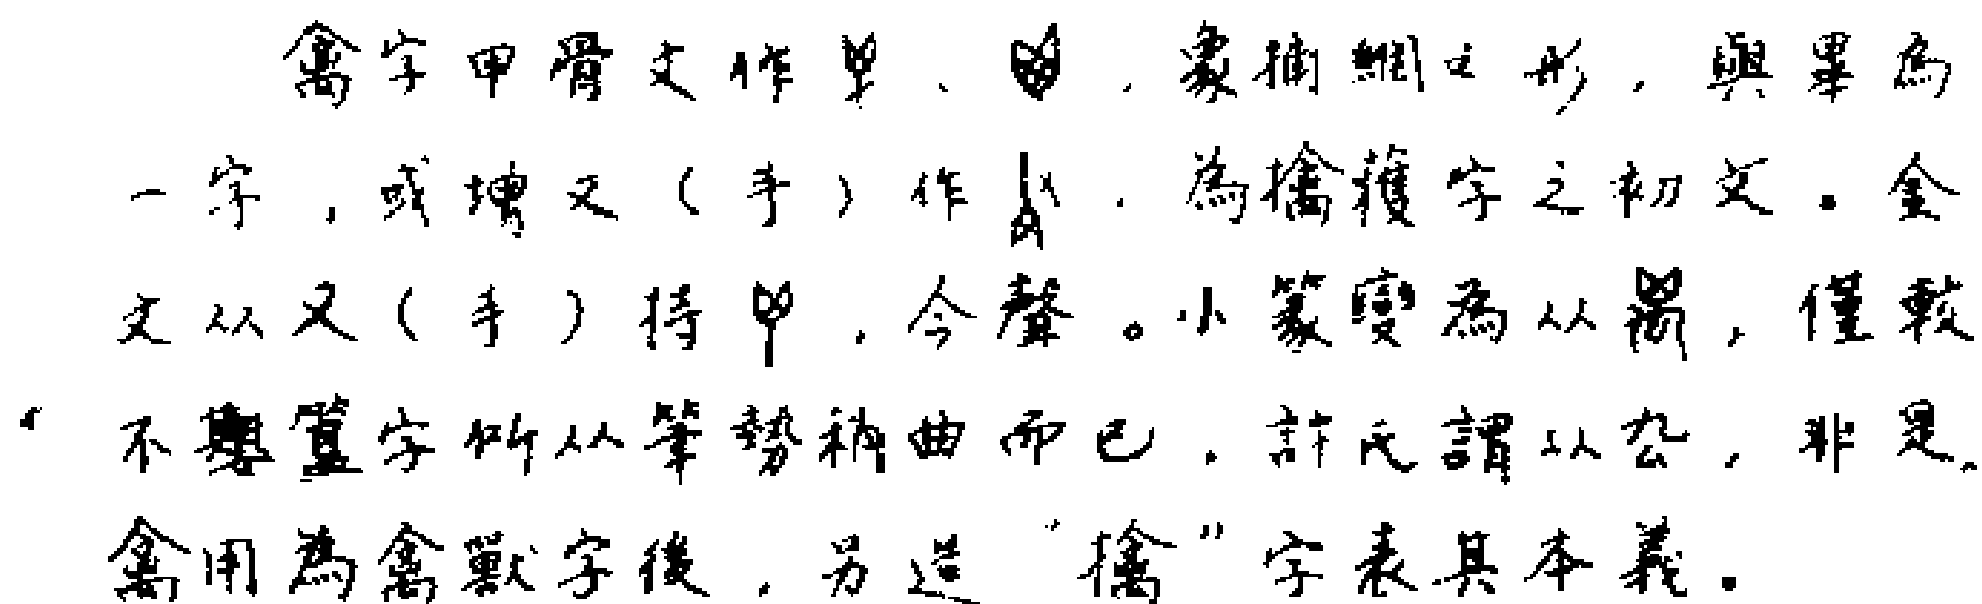 禽字甲骨文作、，象捕網之形，與畢為
一字，或增又（手）作，為擒獲字之初文。金
文从又（手）持，今聲。小篆變為从，僅較
不字所从筆勢稍曲而已，許氏謂从厹，非是，
禽用為禽獸字後，另造“擒”字表其本義。